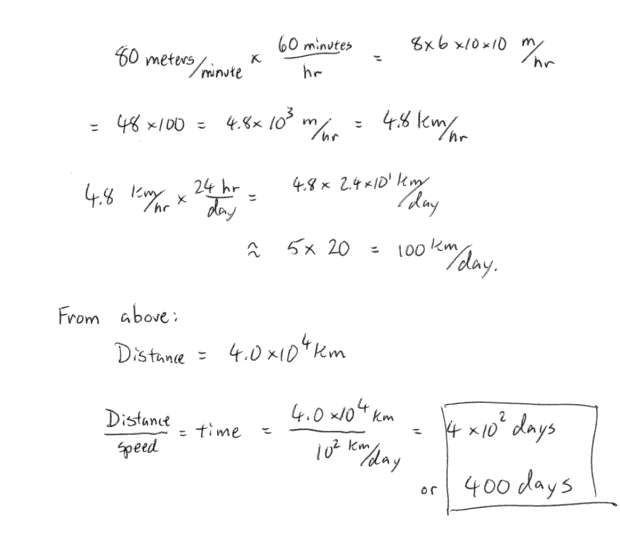 80 meters/minute x 60 minutes/hr = 8x6x10x10 m/hr
= 48 x100 = 4.8x 10³ m/hr = 4.8 km/hr
4.8 km/hr x 24 hr/day = 4.8 x 2.4x10¹ km/day
≈ 5x 20 = 100 km/day.
From above:
Distance = 4.0 x10⁴ km
Distance/speed = time = 4.0 x10⁴ km / 10² km/day = 4 x10² days
or 400 days